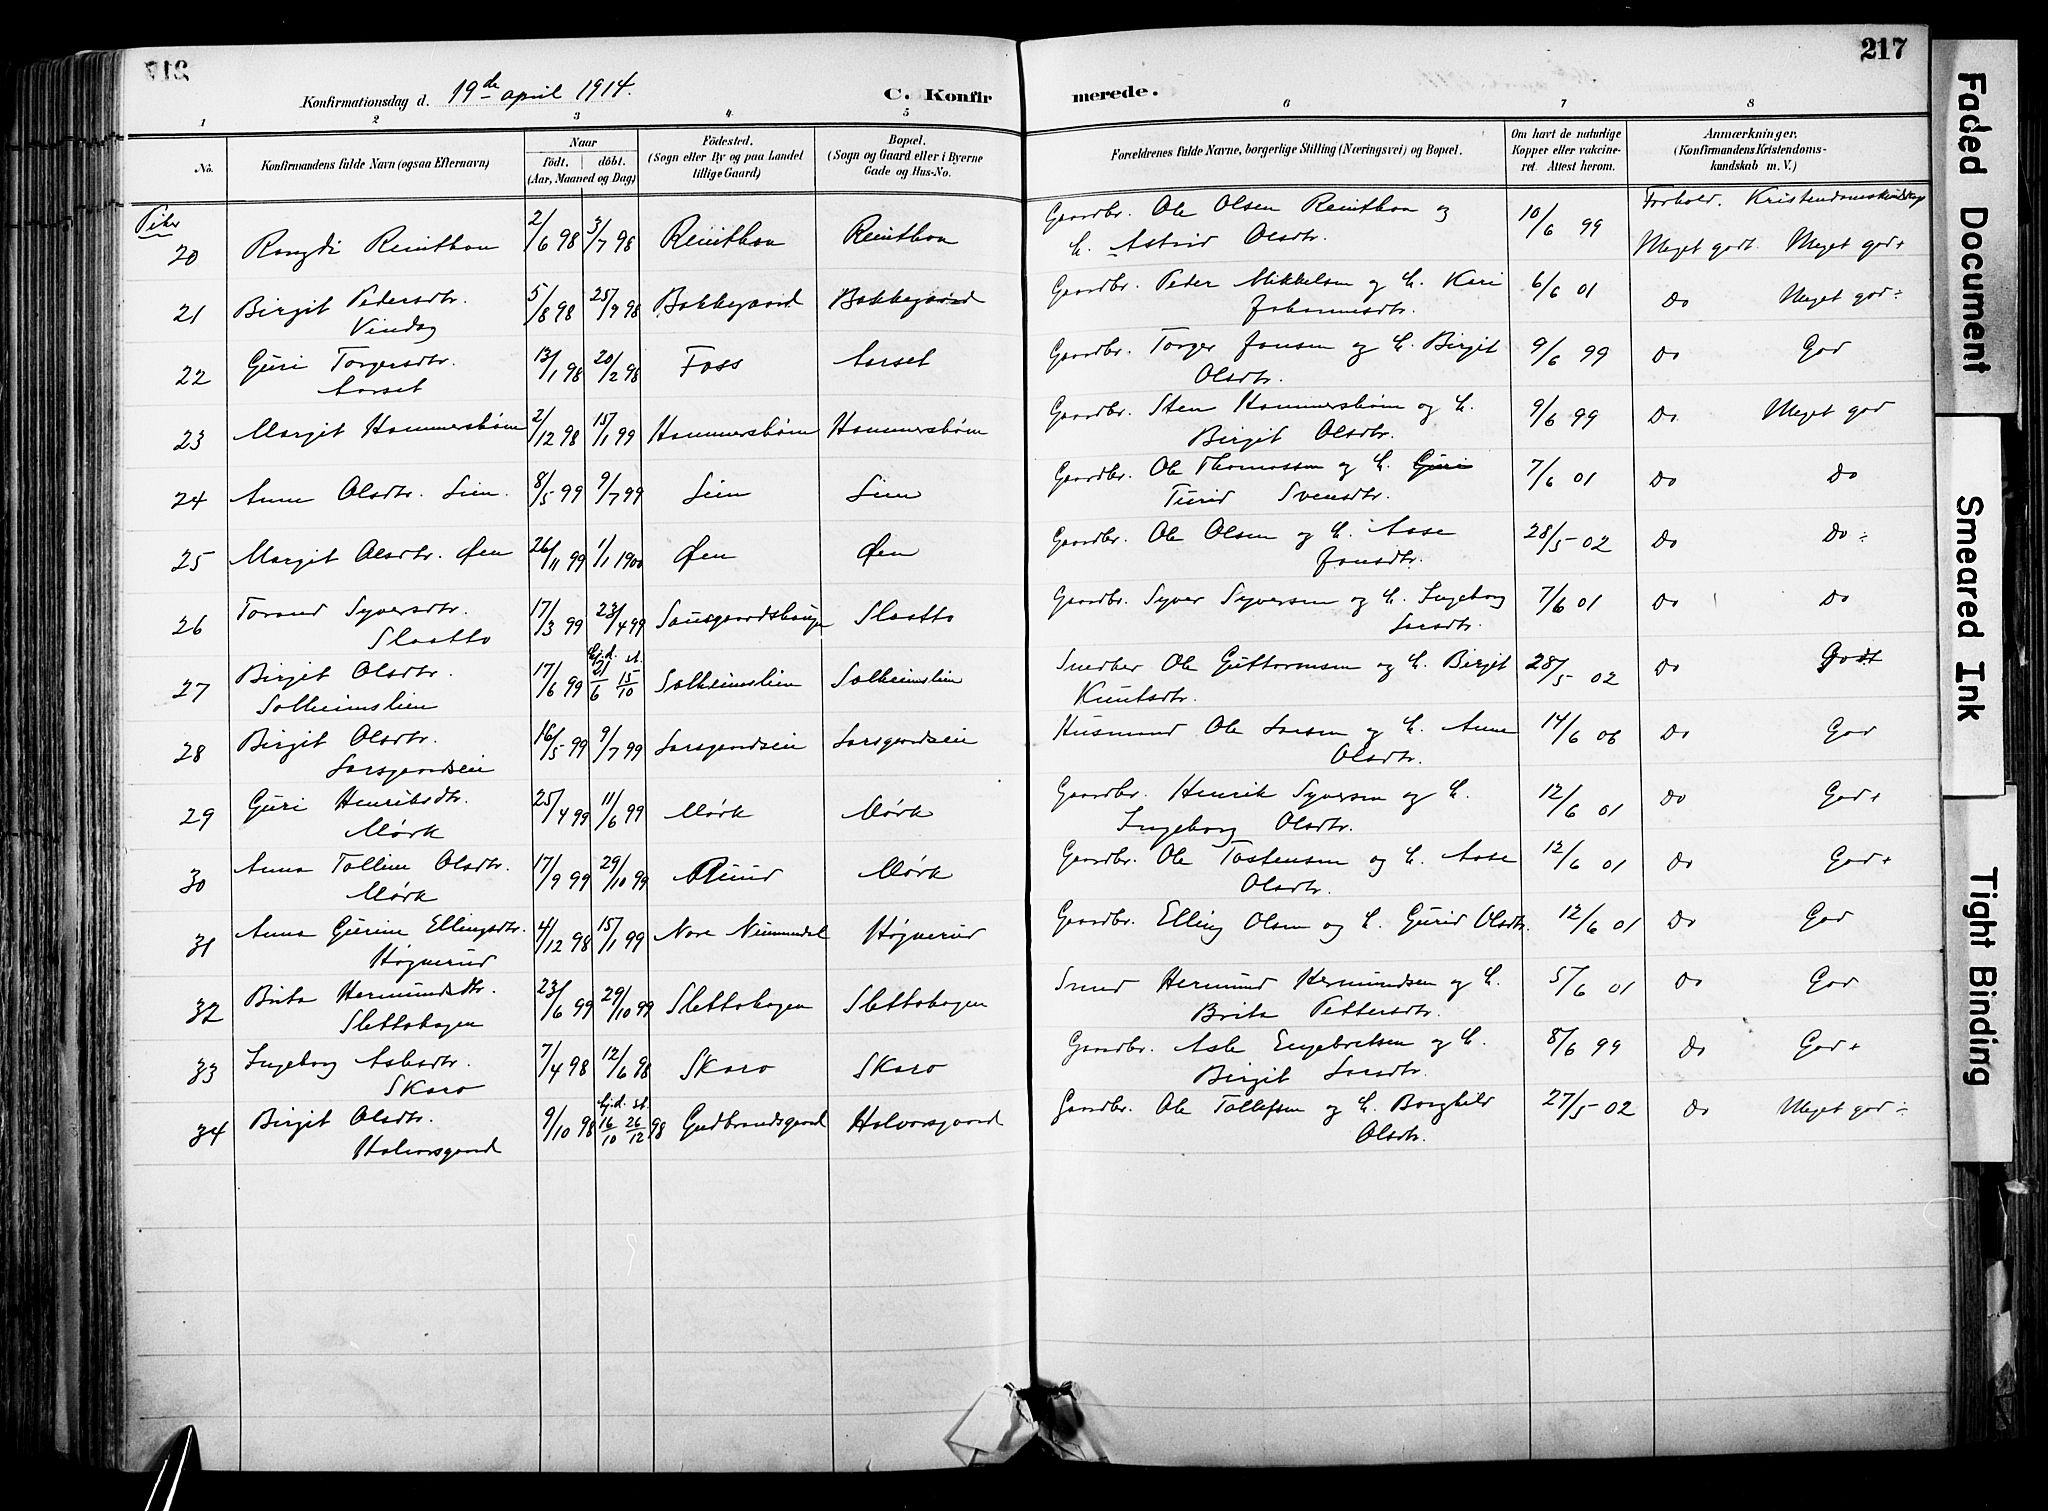 217
Konfirmationsdag d. 19de april 1914.
C. Konfirmerede.
1 2 3 4 5 6 7 8
No.
Konfirmandens fulde Navn (ogsaa Efternavn)
Naar
födt. döbt.
(Aar, Maaned og Dag)
Födested.
(Sogn eller By og paa Landet
tillige Gaard)
Bopæl.
(Sogn og Gaard eller i Byerne
Gade og Hus-No.
Forældrenes fulde Navne, borgerlige Stilling (Næringsvei) og Bopæl.
Om havt de naturlige
Kopper eller vakcine-
ret. Attest herom.
Anmærkninger,
(Konfirmandens Kristendoms-
kundskab m. V.)
Piker
Forhold. Kristendomskundskap
20 Rangdi Reinthon 2/6 98 3/7 98 Reinthon Reinthon Gaardbr. Ole Olsen Reinthon og 10/6 99
h. Astrid Olsdtr. Meget godt. Meget god+
21 Birgit Pedersdtr. 5/8 98 25/9 98 Bakkegaard Bakkegaard Gaardbr. Peder Mikkelsen og h. Kari 6/6 01 Do Meget god÷
Vindeg Johannesdtr.
22 Guri Torgersdtr. 13/1 98 20/2 98 Foss Aarset Gaardbr. Torger Jonsen og h. Birgit 9/6 99 Do God
Aarset Olsdtr.
23 Margit Hammersbøen 2/12 98 15/1 99 Hammersbøen Hammersbøen Gaardbr. Sten Hammersbøen og h. 9/6 99 Do Meget god
Birgit Olsdtr.
24 Anne Olsdtr. Lien. 8/5 99 9/7 99 Lien Lien Gaardbr. Ole Thomassen og h. Guri 7/6 01 Do Do
Turid Svensdtr.
25 Margit Olsdtr. Øen 26/11 99 1/1 1900 Øen Øen Gaardbr. Ole Olsen og h. Aase 28/5 02 Do Do÷
Jonsdtr.
26 Torand Syversdtr. 17/3 99 23/4 99 Slaatto Gaardbr. Syver Syversen og h. Ingeborg 7/6 01 Do Do
Slaatto Larsdtr.
27 Birgit Olsdtr. 17/6 99 hj.d. 21/6 st. 15/10 Solheimslien Solheimslien Snedker Ole Guttormsen og h. Birgit 28/5 02 Do Godt
Solheimslien Knutsdtr.
28 Birgit Olsdtr. 16/5 99 9/7 99 Larsgardseie Larsgardseie Husmand Ole Larsen og h. Anne 14/6 06 Do God
Larsgardseie Olsdtr.
29 Guri Henriksdtr. 25/4 99 11/6 99 Mørk Mørk Gaardbr. Henrik Syversen og h. 12/6 01 Do God+
Mørk Ingeborg Olsdtr.
30 Anna Tolline Olsdtr. 17/9 99 29/10 99 Ruud Mørk Gaardbr. Ole Tostensen og h. Aase 12/6 01 Do God+
Mørk Olsdtr.
31 Anna Gurine Ellingsdtr. 4/12 98 15/1 99 Nore Nummedal Høgnerud Gaardbr. Elling Olsen og h. Gurid Olsdtr. 12/6 01 Do God
Høgnerud
32 Brita Hermundsdtr. 23/6 99 29/10 99 Slettohagen Slettohagen Smed Hermund Hermundsen og h. 5/6 01 Do God
Slettohagen Brita Pettersdtr.
33 Ingeborg Aslesdtr. 7/4 98 12/6 98 Skaro Skaro Gaardbr. Asle Engebretsen og h. 8/6 99 Do God+
Skaro Birgit Larsdtr.
34 Birgit Olsdtr. 9/10 98 hj.d. 16/10 st. 26/12 98 Gudbrandsgaard Halvorsgaard Gaardbr. Ole Tollefsen og h. Borghild 27/5 02 Do Meget god÷
Halvorsgaard Olsdtr.
Faded Document
Smeared Ink
Tight Binding